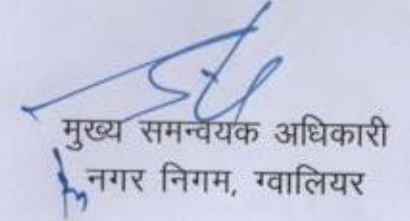 मुख्य समन्वयक अधिकारी
नगर निगम, ग्वालियर